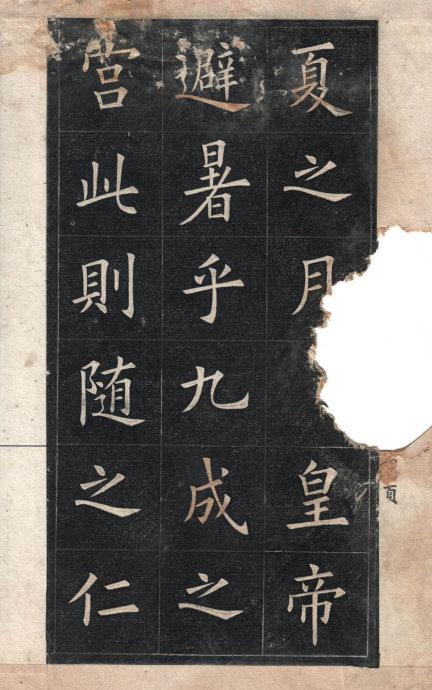 夏之月皇帝
避暑乎九成之
宫此則随之仁
頁